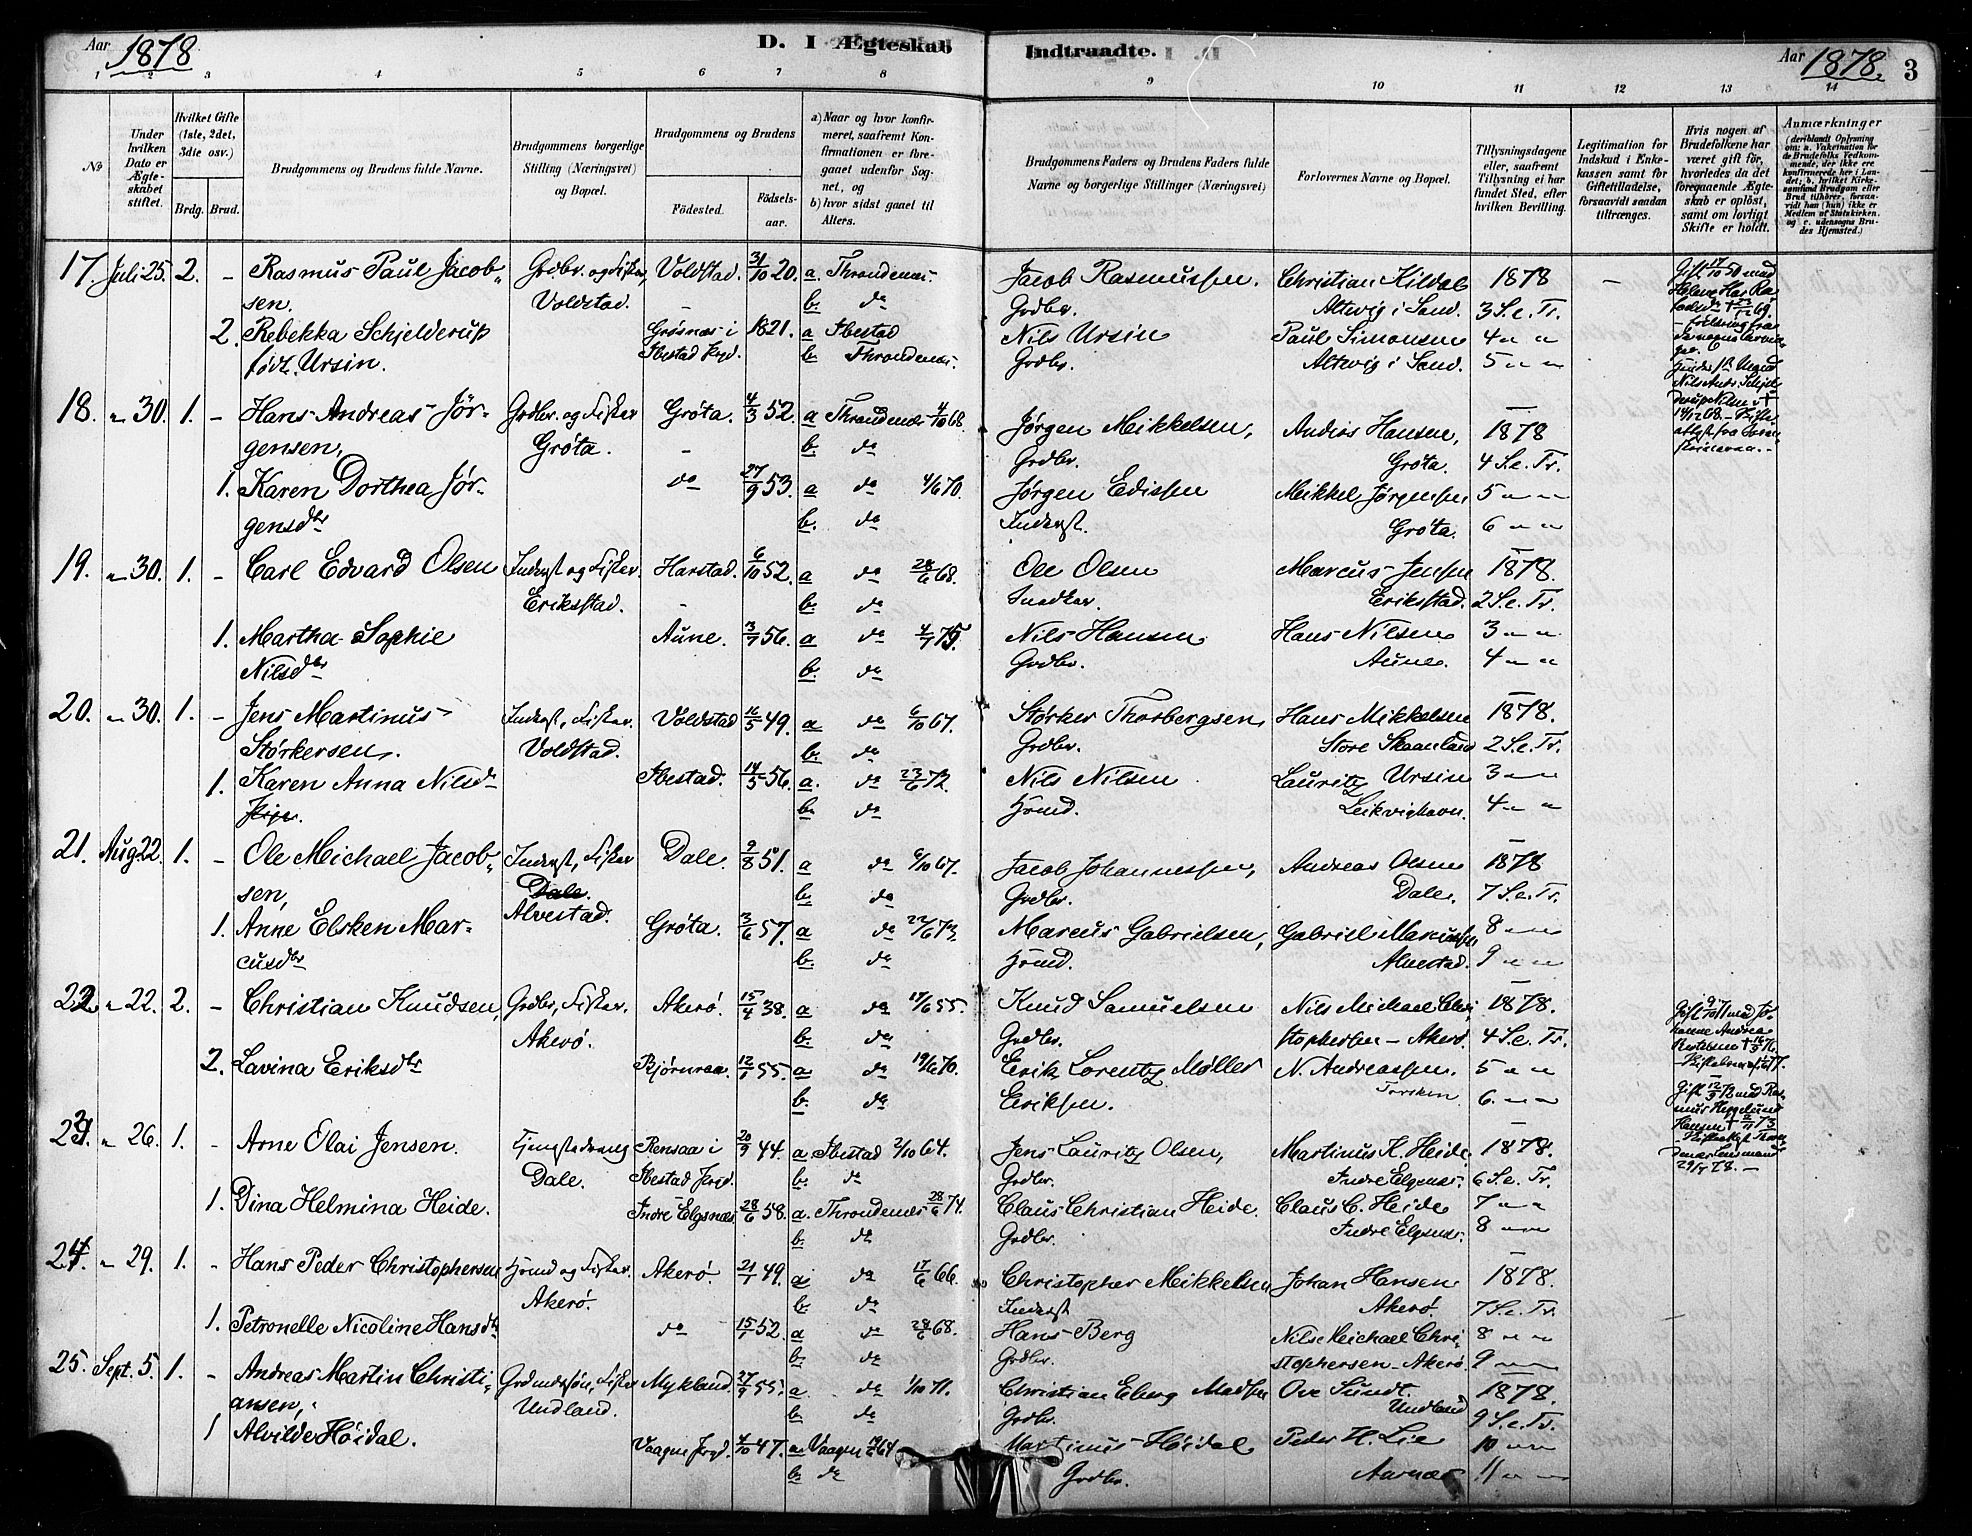 Aar 1878
D. I Ægteskab
Indtraadte.
Aar 1878.
3
1 2 3 4 5 6 7 8
9 10 11 12 13 14
№
Under hvilken Dato er Ægteskabet stiftet.
Hvilket Gifte (1ste, 2det, 3die osv.)
Brdg. Brud.
Brudgommens og Brudens fulde Navne.
Brudgommens borgerlige Stilling (Næringsvei) og Bopæl.
Brudgommens og Brudens
Fødested.
Fødselsaar.
a) Naar og hvor konfirmeret, saafremt Konfirmationen er foregaaet udenfor Sognet, og
b) hvor sidst gaaet til Alters.
Brudgommens Faders og Brudens Faders fulde Navne og borgerlige Stillinger (Næringsvei)
Forlovernes Navne og Bopæl.
Tillysningsdagene eller, saafremt Tillysning ei har fundet Sted, efter hvilken Bevilling.
Legitimation for Indskud i Enkekassen samt for Giftetilladelse, forsaavidt saadan tiltrænges.
Hvis nogen af Brudefolkene har været gift før, hvorledes da det foregaaende Ægteskab er opløst, samt om lovligt Skifte er holdt.
Anmærkninger
17. Juli 25. 2. - Rasmus Paul Jacob- Grdbr. og Fisker, Voldstad. 31/10 20. a. Throndenæs. Jacob Rasmussen. Christian Kildal 1878 -
sen. Voldstad. - b. do Grdbr. Altevig i Sand. 3 S.e.Tr.
2. Rebekka Schjelderup Grøsnæs i 1821. a Ibestad Nils Ursin Paul Simonsen 4 " "
født Ursin. Ibestad Prgd. b. Throndenæs. Grdbr. Altevig i Sand. 5 " "
18. " 30. 1. - Hans Andreas Jør- Grdbr. og Fisker Grøta. 4/3 52. a Throndenæs 4/10 68. Jørgen Mikkelsen, Andreas Hansen, 1878
gensen, Grøta. - b. do Grdbr. Grøta. 4 S.e.Tr.
1. Karen Dorthea Jør- do 27/9 53. a do 4/6 70. Jørgen Edissen Mikkel Jørgensen 5 " "
gensdtr b. do Inderst. Grøta. 6 " "
19. " 30. 1. - Carl Edvard Olsen Inderst og Fisker. Harstad. 6/10 52. a do 28/6 68. Ole Olsen Marcus Jensen 1878.
Eriksstad. - b. do Snedker. Eriksstad. 2 S.e.Tr.
1. Martha Sophie Aune. 3/7 56. a do 4/7 75. Nils Hansen Hans Nilsen 3 " "
Nilsdtr b. do Grdbr. Aune. 4 " "
20. " 30. 1. - Jens Martinus Inderst, Fisker. Voldstad 16/5 49. a do 6/10 67. Størker Thorbergsen, Hans Mikkelsen 1878.
Størkersen. Voldstad. b. do Grdbr. Store Skaanland 2 S.e.Tr.
1. Karen Anna Nilsdr Ibestad. 14/5 56. a. do 23/6 72. Nils Nilsen Lauritz Ursin 3 " "
b. do Hsmd. Leikvighavn. 4 " "
21. Aug. 22. 1. - Ole Michael Jacob- Inderst, Fisker Dale. 9/8 51. a do 6/10 67. Jacob Johannessen, Andreas Olsen 1878
sen, Dale. b. do Grdbr. Dale. 7 S.e.Tr.
Alvestad.
1. Anne Elsken Mar- Grøta. 3/6 57. a do 22/6 73. Marcus Gabrielsen, Gabriel Marcussen, 8 " "
cusdtr b. do Hsmd. Alvestad. 9 " "
22. " 22. 2. - Christian Knudsen, Grdbr, Fisker. Akerø. 15/4 38. a do 17/6 55. Knud Samuelsen Nils Michael Chri- 1878.
Akerø. b. do Grdbr. stophersen - Akerø. 4 S.e.Tr.
2. Lavina Eriksdtr Bjørnraa. 12/1 55. a do 19/6 70. Erik Lorentz Møller N. Andreassen. 5 " "
b. do Eriksen. Torsken 6. " "
23. " 26. 1. - Arne Elai Jensen. Tjenestedreng Rensaa i 20/9 44. a Ibestad 2/10 64. Jens Lauritz Olsen, Martinus K. Heide. 1878.
Dale. Ibestad Prgd. b. do Grdbr. Indre Elgsnæs. 6 S.e.Tr.
1. Dina Helmina Heide. Indre Elgsnæs 28/6 58. a. Throndenæs 28/6 74. Claus Christian Heide. Claus C. Heide 7 " "
b. do Grdbr. Indre Elgsnæs. 8 " "
24. " 29. 1. - Hans Peder Christophersen Hsmd og Fisker. Akerø. 21/1 49. a. do 17/6 66. Christopher Mikkelsen Johan Hansen 1878.
Akerø. b. do Inderst Akerø. 7 S.e.Tr.
1. Petronelle Nicoline Hansdtr do 15/1 52. a do 28/6 68. Hans Berg Nils Michael Chri- 8 " "
b. do Grdbr. stophersen - Akerø. 9 " "
25. Sept. 5. 1. - Andreas Martin Christi- Grdmdssøn, Fisker Mykland. 27/9 55. a. do 1/10 71. Christian Eberg Madsen Ove Sundt. 1878.
ansen, Undland. b. do Grdbr. Undland 9 S.e.Tr.
1 Alvilde Høidal. Vaagen Prgd. 4/10 47. a. Vaagen 19/6 64 Martinus Høidal Peder H. Lie 10 " "
b. do Grdbr. Aarnæs 11 " "